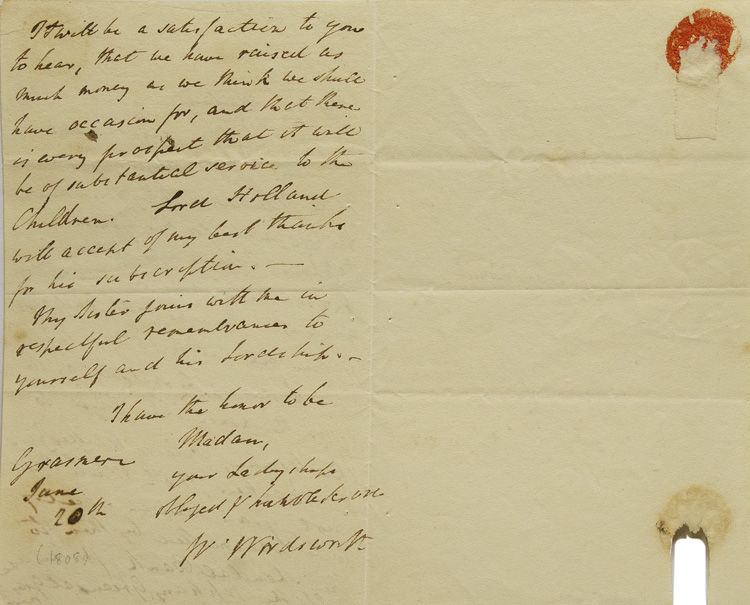 It will be a satisfaction to you
to hear, that we have raised as
much money as we think we shall
have occasion for, and that there
is every prospect that it will
be of substantial service to the
Children. Lord Holland
will accept of my best thanks
for his subscription. —
My Sister joins with me in
respectful remembrances to
yourself and his Lordship. —
I have the honor to be
Madam,
your Ladyships
obliged &
W. Wordsworth
Grasmere
June
20th
(1808)